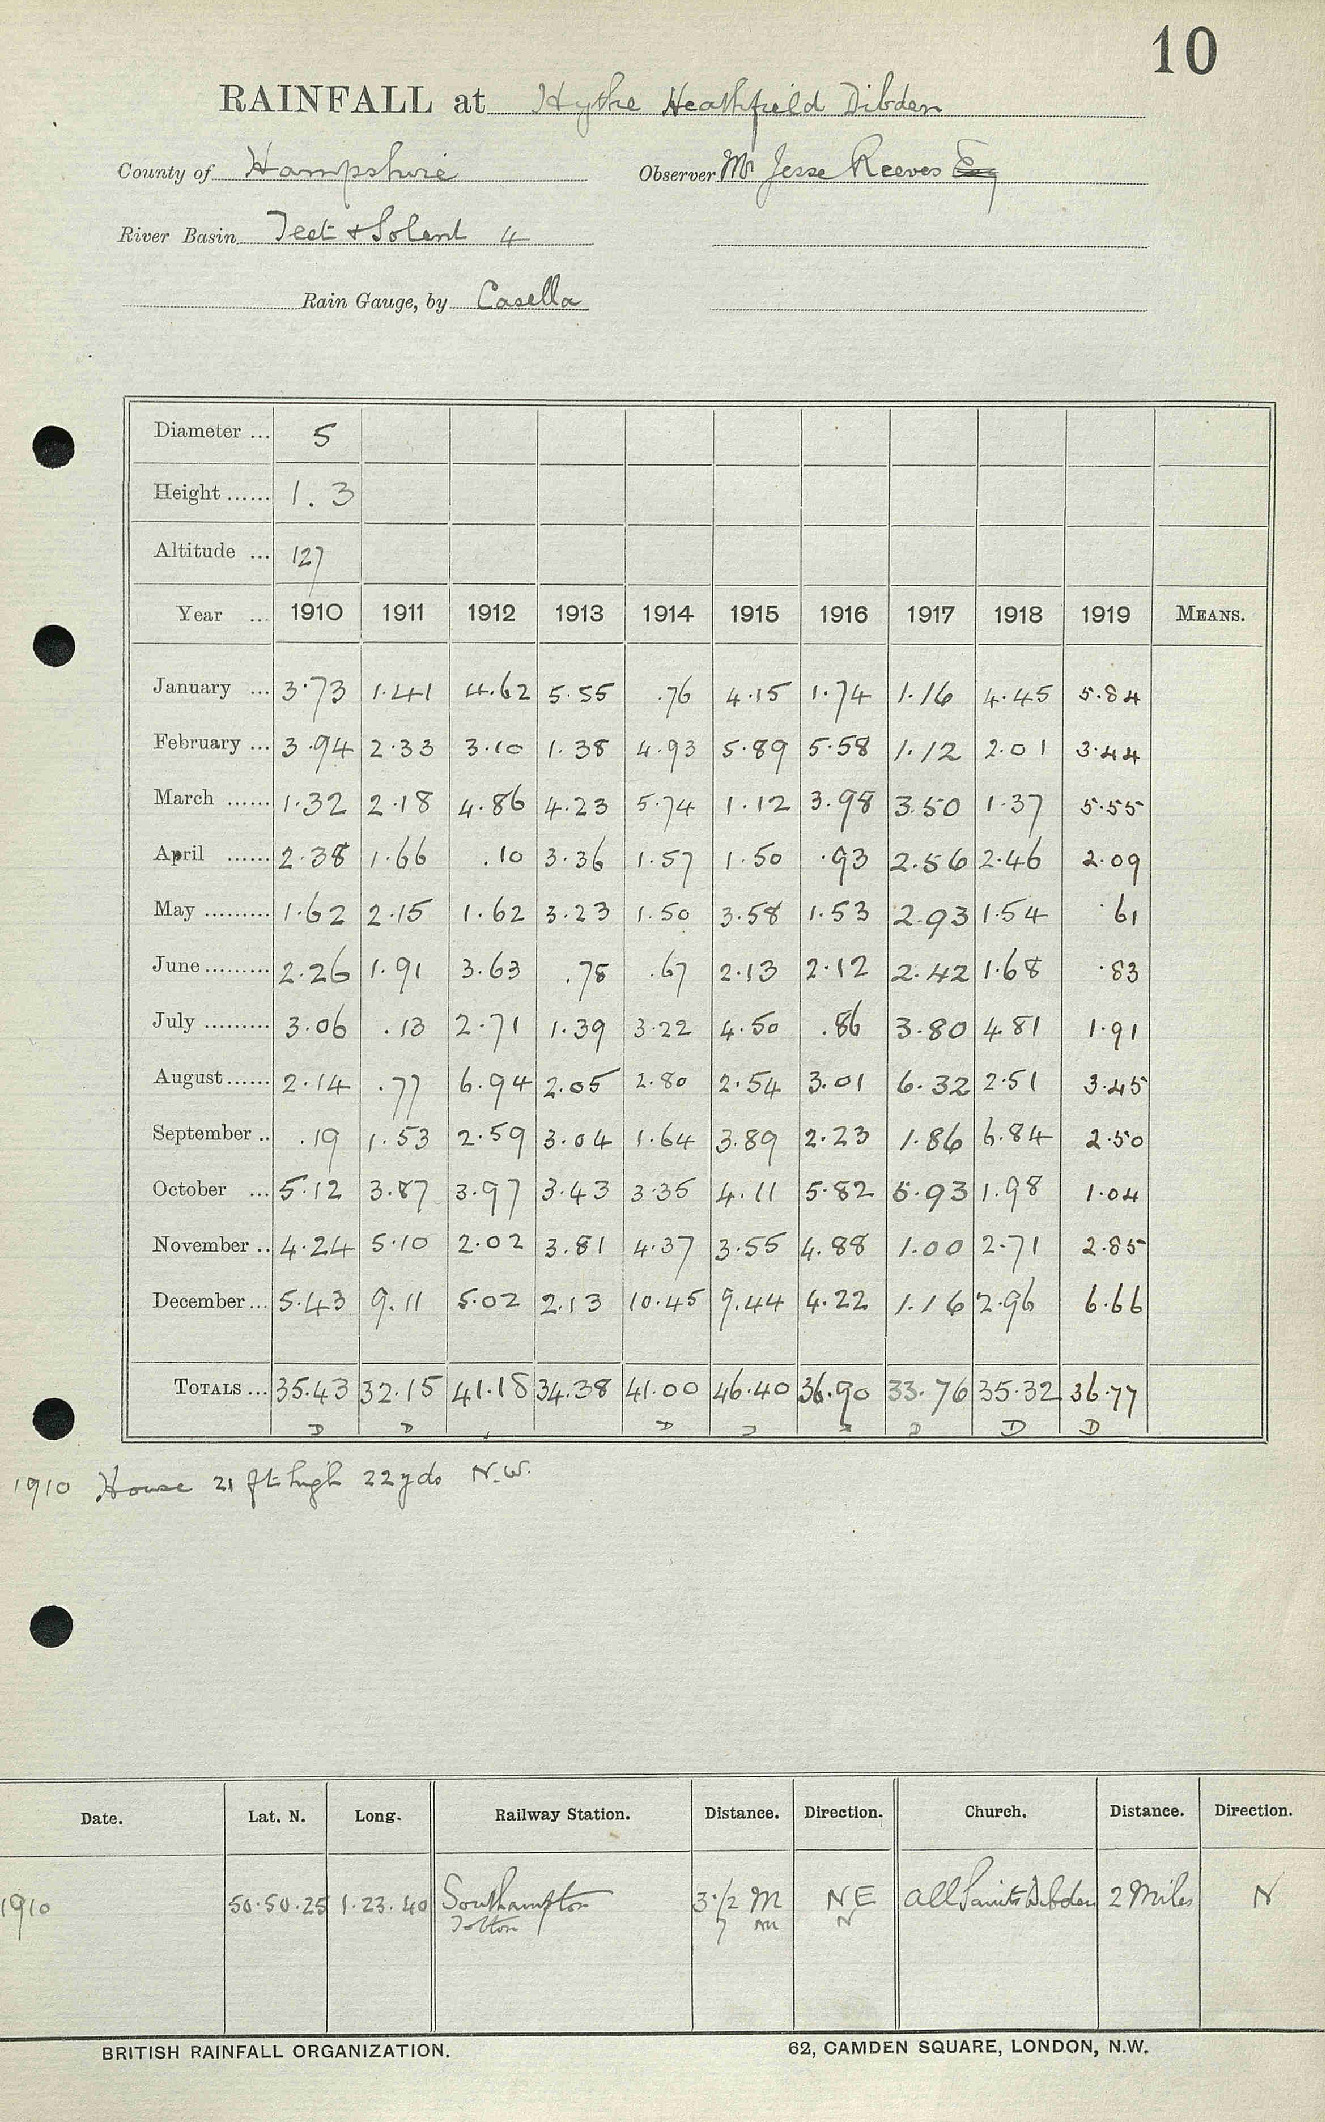 10
RAINFALL at Hythe Heathfield Dibden
County of Hampshire Observer Mr Jesse Reeves Esq
River Basin Test & Solent 4
Rain Gauge, by Casella
Diameter ... 5
Height ...... 1.3
Altitude ... 127
Year ... 1910 1911 1912 1913 1914 1915 1916 1917 1918 1919 MEANS.
January ... 3.73 1.41 4.62 5.55 .76 4.15 1.74 1.16 4.45 5.84
February ... 3.94 2.33 3.10 1.38 4.93 5.89 5.58 1.12 2.01 3.44
March ...... 1.32 2.18 4.86 4.23 5.74 1.12 3.98 3.50 1.37 5.55
April ...... 2.38 1.66 .10 3.36 1.57 1.50 .93 2.56 2.46 2.09
May ......... 1.62 2.15 1.62 3.23 1.50 3.58 1.53 2.93 1.54 .61
June ......... 2.26 1.91 3.63 .78 .67 2.13 2.12 2.42 1.68 .83
July ......... 3.06 .13 2.71 1.39 3.22 4.50 .86 3.80 4.81 1.91
August ...... 2.14 .77 6.94 2.05 2.80 2.54 3.01 6.32 2.51 3.45
September .. .19 1.53 2.59 3.04 1.64 3.89 2.23 1.86 6.84 2.50
October ... 5.12 3.87 3.97 3.43 3.35 4.11 5.82 5.93 1.98 1.04
November .. 4.24 5.10 2.02 3.81 4.37 3.55 4.88 1.00 2.71 2.85
December ... 5.43 9.11 5.02 2.13 10.45 9.44 4.22 1.16 2.96 6.66
TOTALS ... 35.43 32.15 41.18 34.38 41.00 46.40 36.90 33.76 35.32 36.77
D D D D D D D D
1910 House 21 ft high 22 yds N.W.
Date. Lat. N. Long. Railway Station. Distance. Direction. Church. Distance. Direction.
1910 50.50.25 1.23.40 Southampton 3 1/2 M NE All Saints Dibden 2 Miles N
Totton 7 m N
BRITISH RAINFALL ORGANIZATION. 62, CAMDEN SQUARE, LONDON, N.W.